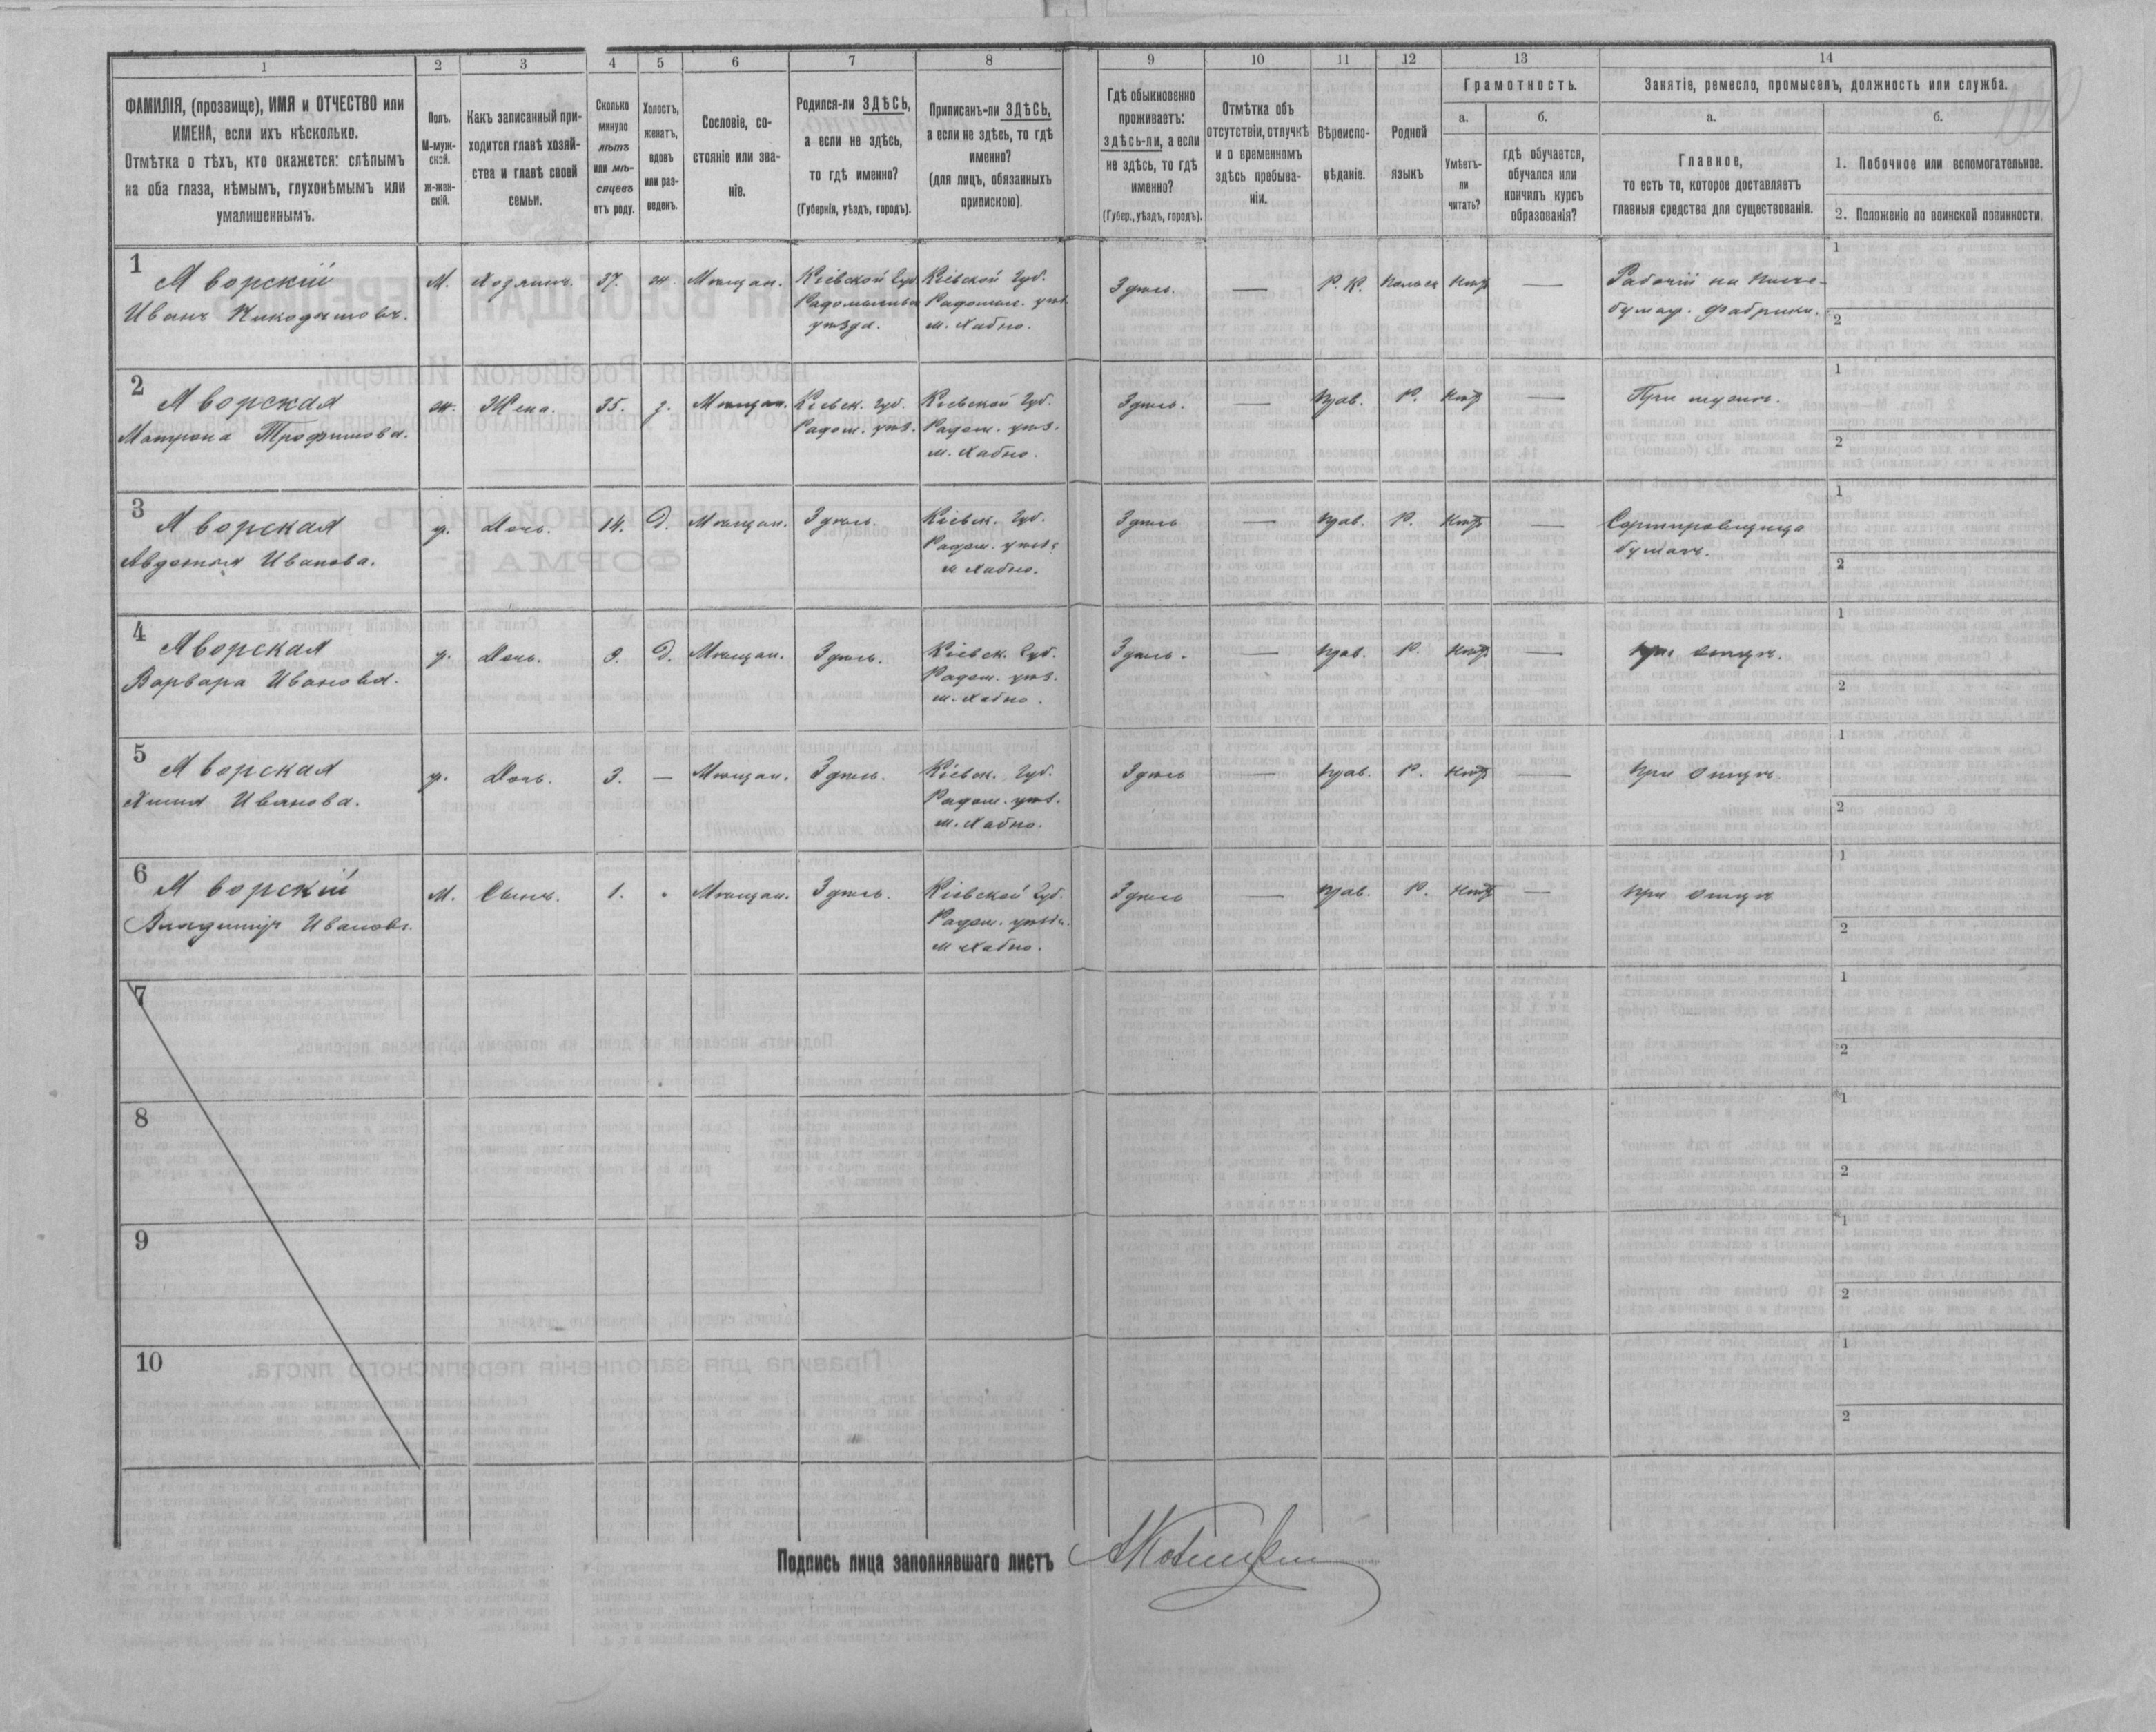 1
2
3
4
5
6
7
8
9
10
11
12
13
14
ФАМИЛІЯ, (прозвище), ИМЯ и ОТЧЕСТВО или
ИМЕНА, если ихъ нѣсколько.
Отмѣтка о тѣхъ, кто окажется: слѣпымъ
на оба глаза, нѣмымъ, глухонѣмымъ или
умалишеннымъ.
Полъ.
М-муж-
ской.
ж-жен-
скій.
Какъ записанный при-
ходится главѣ хозяй-
ства и главѣ своей
семьи.
Сколько
минуло
лѣтъ
или мѣ-
сяцевъ
отъ роду.
Холостъ,
женатъ,
вдовъ
или раз-
веденъ.
Сословіе, со-
стояніе или зва-
ніе.
Родился-ли ЗДѢСЬ,
а если не здѣсь,
то гдѣ именно?
(Губернія, уѣздъ, городъ).
Приписанъ-ли ЗДѢСЬ,
а если не здѣсь, то гдѣ
именно?
(для лицъ, обязанныхъ
припискою).
Гдѣ обыкновенно
проживаетъ:
здѣсь-ли, а если
не здѣсь, то гдѣ
именно?
(Губер., уѣздъ, городъ).
Отмѣтка объ
отсутствіи, отлучкѣ
и о временномъ
здѣсь пребыва-
ніи.
Вѣроиспо-
вѣданіе.
Родной
языкъ
Грамотность.
а.
Умѣетъ-
ли
читать?
б.
гдѣ обучается,
обучался или
кончилъ курсъ
образованія?
Занятіе, ремесло, промыселъ, должность или служба.
а.
Главное,
то есть то, которое доставляетъ
главныя средства для существованія.
б.
1. Побочное или вспомогательное.
2. Положеніе по воинской повинности.
1
Яворскій
Иванъ Никодимовъ.
М. Хозяинъ. 37. ж. Мѣщан.
Кіевской Губ.
Радомысльск
уѣзда.
Кіевской Губ.
Радомыс. уѣз.
м. Хабно.
Здѣсь. — Р. К. Польск нѣтъ —
Рабочій на писче-
бумаж. фабрики.
1
2
2
Яворская
Матрона Трофимова.
ж. Жена. 35. з. Мѣщан.
Кіевск. Губ.
Радом. уѣз.
Кіевской Губ.
Радом. уѣз.
м. Хабно.
Здѣсь. — прав. Р. нѣтъ —
При мужѣ.
1
2
3
Яворская
Авдотья Иванова.
Дочь. 14. Д. Мѣщан. Здѣсь.
Кіевск. Губ.
Радом. уѣз.
м Хабно.
Здѣсь — прав. Р. нѣтъ —
Сортировщица
бумаги.
1
2
4
Яворская
Варвара Иванова.
Дочь. 9. Д. Мѣщан. Здѣсь.
Кіевск. Губ.
Радом. уѣз.
м. Хабно.
Здѣсь. — прав. Р. нѣтъ —
при отцѣ.
1
2
5
Яворская
Иванова.
Дочь. 3. — Мѣщан. Здѣсь.
Кіевск. Губ.
Радом. уѣз.
м. Хабно.
Здѣсь — прав. Р. нѣтъ —
при отцѣ
1
2
6
Яворскій
Владиміръ Ивановъ.
М. Сынъ. 1. Мѣщан. Здѣсь.
Кіевской Губ.
Радом. уѣзд.
м Хабно.
Здѣсь — прав. Р. нѣтъ —
при отцѣ
1
2
7
1
2
8
1
2
9
1
2
10
1
2
Подпись лица заполнявшаго листъ